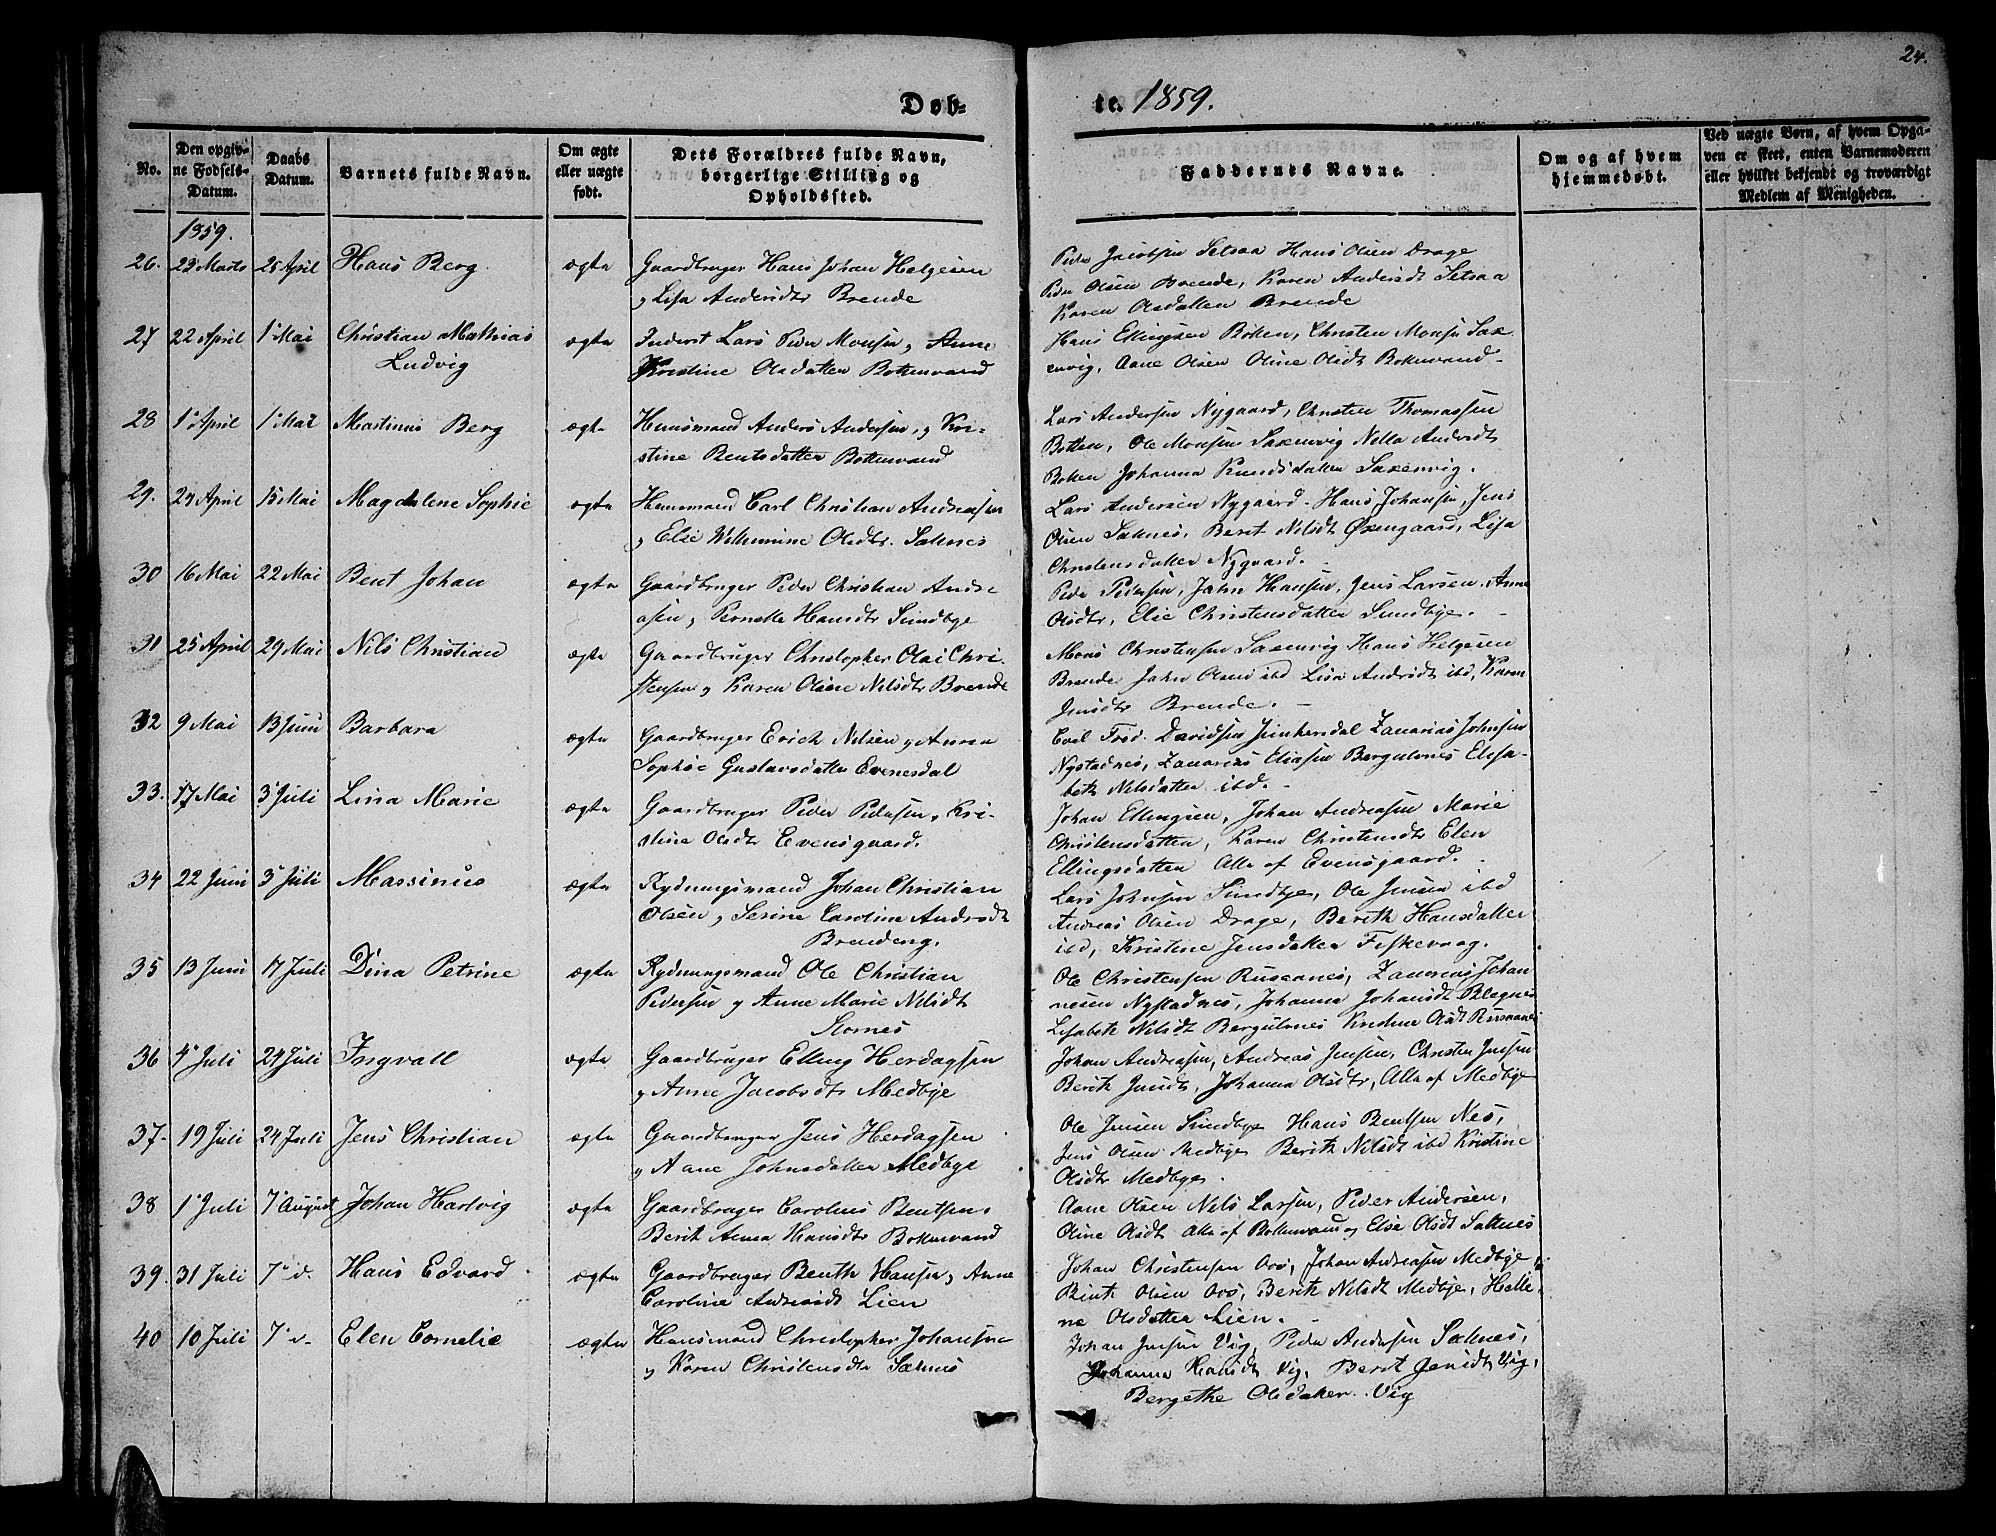 24.
Døb-
te. 1859.
No.
Den opgiv-
ne Fødsels-
Datum.
Daabs
Datum.
Barnets fulde Navn.
Om ægte
eller uægte
født.
Dets Forældres fulde Navn,
borgerlige Stilling og
Opholdssted.
Faddernes Navne.
Om og af hvem
hjemmedøbt.
Ved uægte Børn, af hvem Opga-
ven er skeet, enten Barnemoderen
eller hvilket bekjendt og troværdigt
Medlem af Menigheden.
1859.
26. 23 Marts 25 April Hans Berg ægte Gaardbruger Hans Johan Helgesen
og Lisa Andersdtr Brende
Peder Jacobsen Setsaa Hans Olsen Drage
Peder Olsen Brende, Karen Andersdt Setsaa
Karen Olsdatter Brende
27 22 April 1 Mai Christian Mathias ægte Inderst Lars Peder Monsen og Anne
Ludvig Kristine Olsdatter Botnvand
Hans Ellingsen Botten, Christen Monsen Sax
envig, Aane Olsen Oline Olsdt Botnvand
28 1 April 1 Mai Martinus Berg ægte Huusmand Anders Andersen og Kri-
stine Bentsdatter Bottenvand
Lars Andersen Nygaard, Christen Thomassen
Botten, Ole Monsen Saxenvig Nella Andersdt
Botten Johanna Knudsdatter Saxenvig.
29. 24 April 15 Mai Magdalene Sophie ægte Huusmand Carl Christian Andreasen
og Elie Wilhelmine Olsdtr. Saknes
Lars Andersen Nygaard. Hans Johansen, Jens
Olsen Saknes, Beret Nilsdt Øxengaard, Lisa
Christensdatter Nygaard.
30 16 Mai 22 Mai Bent Johan ægte Gaardbruger Peder Christian Andre
asen og Pernelle Hansdtr Sundbye
Peder Pedersen, Jahn Hansen, Jens Larsen. Anne
Olsdtr, Elie Christensdatter Sundbye.
31 25 April 29 Mai Nils Christian ægte Gaardbruger Christopher Olai Chri-
stensen og Karen Olsine Nilsdtr Brende
Mons Christensen Saxenvig Hans Helgesen
Brende Jahn Olsen ibd Lisa Andersdt ibd, Karen
Jensdtr Brende.
32 9 Mai 13 Juni Barbara ægte Gaardbruger Erich Nilsen og Anna
Sophie Gustavsdatter Evenesdal
Carl Fred. Davidsen Junkersdal Zacarias Johnsen
Nystadnes, Zacarias Eliasen Bergulnes Elisa-
beth Nilsdatter ibd.
33. 17 Mai 3 Juli Lina Marie ægte Gaardbruger Peder Pedersen og Kri-
stine Olsdtr Evensgaard.
Johan Ellingsen, Johan Andreasen Marie
Christensdatter, Karen Christensdtr Elen
Ellingsdatter Alle af Evensgaard.
34 22 Juni 3 Juli Massinus ægte Rydningsmand Johan Christian
Olsen og Serine Caroline Andersdt
Brendeng.
Lars Johnsen Sundbye, Ole Jensen ibd
Andreas Olsen Drage, Berith Hansdatter
ibd, Kristine Jensdatter Fiskevaag.
35 13 Juni 17 Juli Dina Petrine ægte Rydningsmand Ole Christian
Pedersen og Anne Marie Nilsdt
Stornes
Ole Christensen Rusaanes, Zacarias Johan
nesen Nystadnes, Johanna Johansdt
Lisabeth Nilsdt Bergulnes Kristine Olsdt Rusaanes
36 4 Juli 24 Juli Ingvall ægte Gaardbruger Elling Herdagsen
og Anne Jacobsdtr Medbye
Johan Andreasen, Andreas Jensen, Christen Jensen
Berith Jensdt, Johanna Olsdtr, Alle af Medbye
37. 19 Juli 24 Juli Jens Christian ægte Gaardbruger Jens Herdagsen
og Aane Johnsdatter Medbye
Ole Jensen Sundbye Hans Bentsen Nes,
Jens Olsen Medbye Berith Nilsdt ibd Kristine
Olsdtr Medbye.
38 1 Juli 7 August Johan Hartvig ægte Gaardbruger Carolius Bentsen
Berit Anna Hansdtr Bottenvand
Aane Olsen Nils Larsen, Peder Andersen,
Oline Olsdt Alle af Bottenvand og Else Olsdt Saknes
39. 31 Juli 7 d. Hans Edvard ægte Gaardbruger Benth Hansen og Anne
Caroline Andreasdt Lien
Johan Christensen Aas, Johan Andreasen Medbye
Bent Olsen Aas, Berith Nilsdt Medbye, Helle
ne Olsdatter Lien.
40 10 Juli 7 d. Elen Cornelie ægte Huusmand Christopher Johansen
og Karen Christensdtr Saknes
Johan Jensen Vig, Peder Andersen Saknes,
Johanna Hansdt Vig, Berit Jensdt Vig,
Bergethe Olsdatter Vig